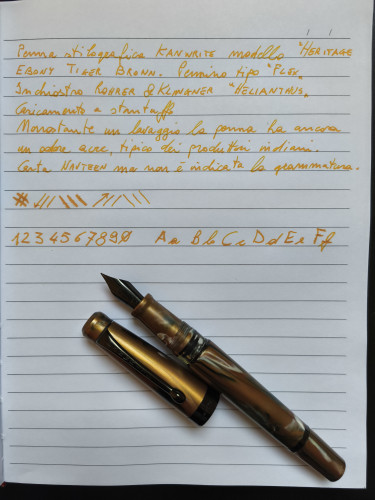 Penna stilografica KANWRITE modello "HERITAGE
EBONY TIGER BROWN. Pennino tipo "FLEX„
Inchiostro ROHRER & KLINGNER "HELIANTHUS„
Caricamento a stantuffo
Nonostante un lavaggio la penna ha ancora
un odore acre, tipico dei produttori indiani.
Carta NANTEEN ma non è indicata la grammatura.
1 2 3 4 5 6 7 8 9 0 A a B b C c D d E e F f